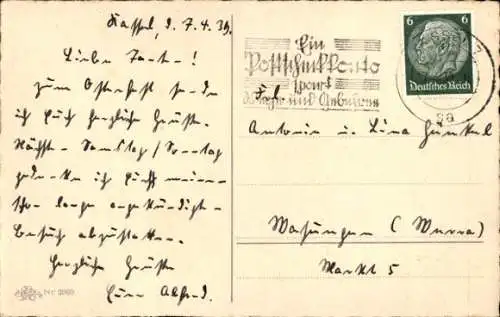 Kassel, d. 7.4.39.
Liebe Tante!
Zum Osterfest sende
ich Euch herzliche Grüße.
Nächste Samstag/Sonntag
gedenke ich Euch meinen
schon lange angekündigten
Besuch abzustatten.
Herzliche Grüße
Euer Alfred.
Nr.
Ein
Postscheckkonto
spart
Wege und Gebühren
6 6
Deutsches Reich
Frl.
Antonie u. Lina Hunkel
Wasungen (Werra)
Markt 5